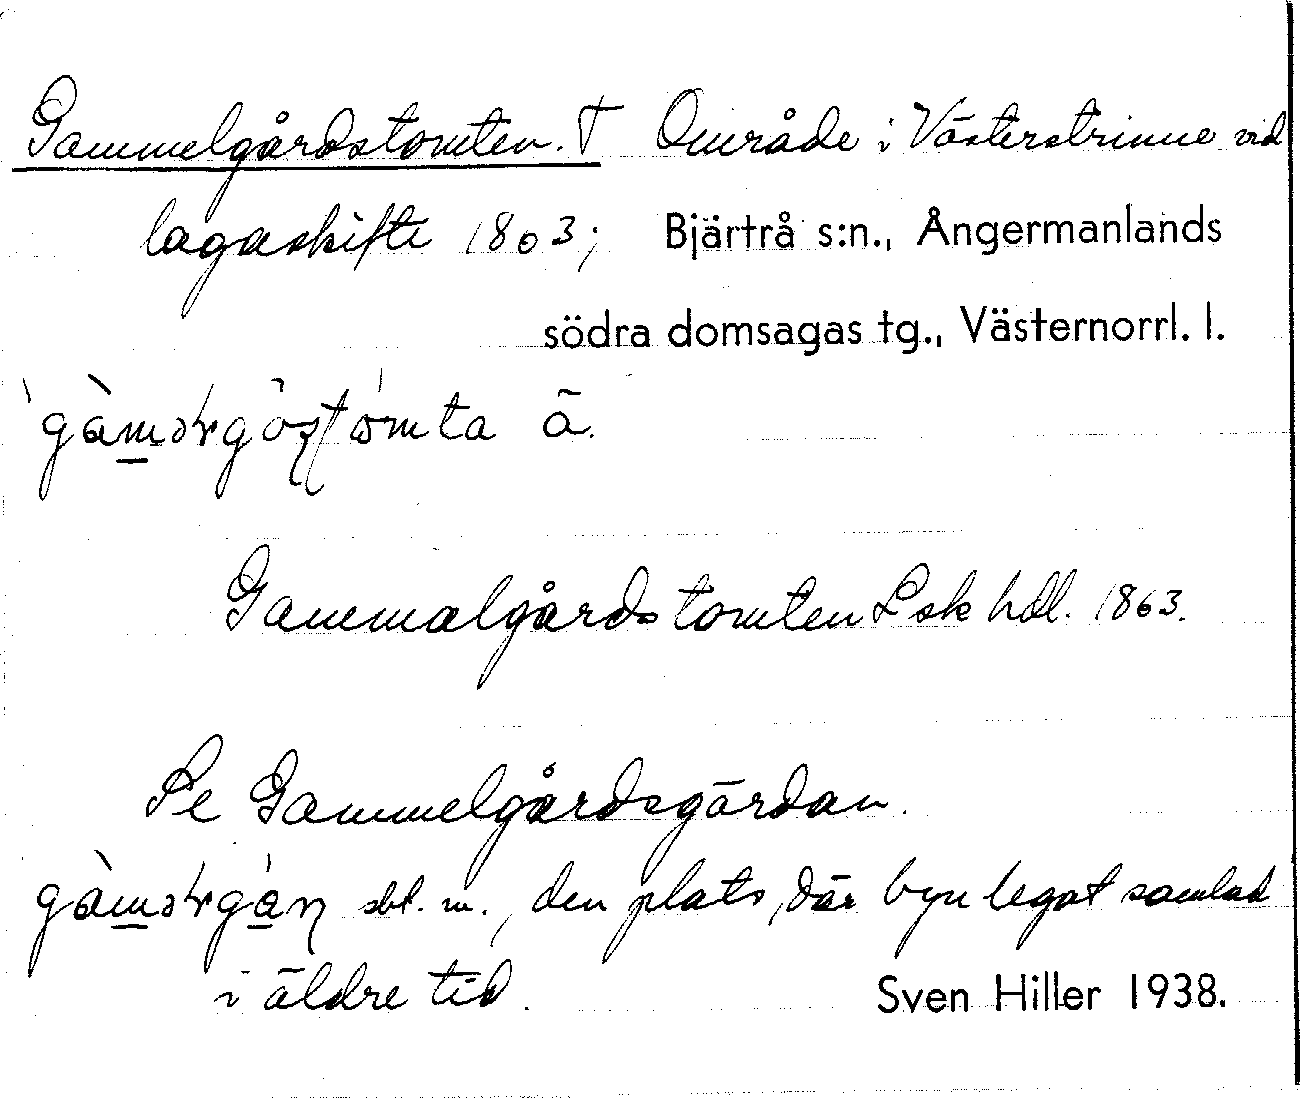 Gammelgårdstomten. † Område i Västerstrinne vid
lagaskifte 1863; Bjärtrå s:n., Ångermanlands
södra domsagas tg., Västernorrl. l.
ā.
Gammalgårdstomten Lsk hdl. 1863.
Se Gammelgårdsgärdan.
sbt. m., den plats, där byn legat samlad
i äldre tid. Sven Hiller 1938.